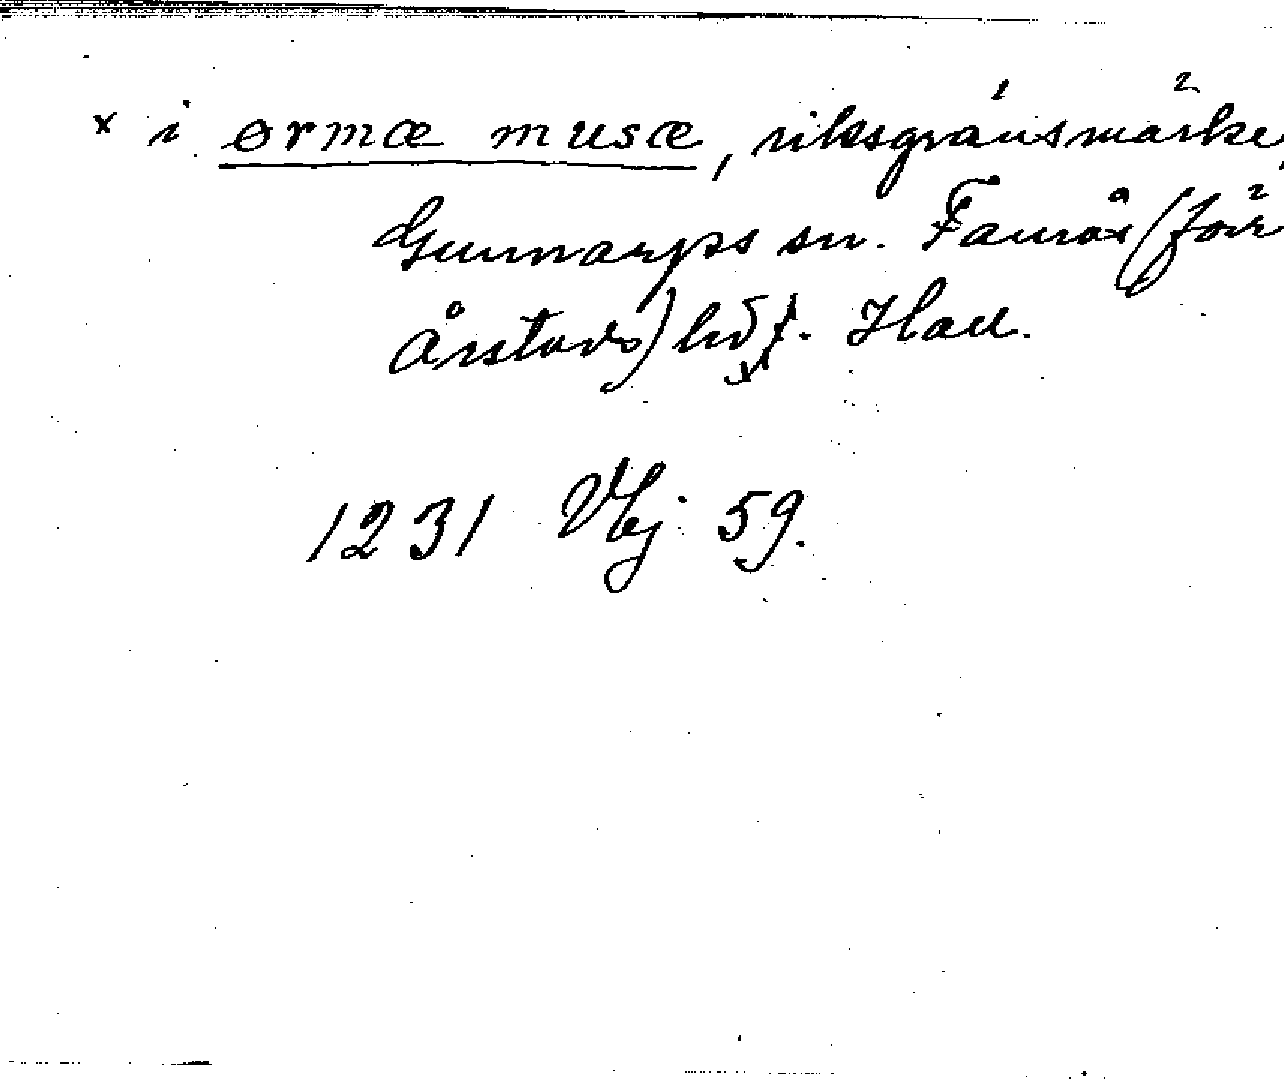 x i ormæ musæ, riksgränsmärke,
Gunnarps sn. Faurås (för
Årstads) hd, Hall.
1231 Vbj 59.